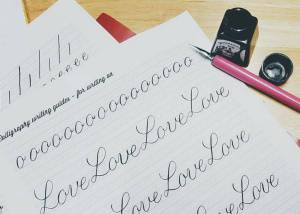 Calligraphy writing guides - for writing on
oooooooooooooooo
LoveLoveLoveLove
LoveLoveLove
LoveLove
Love